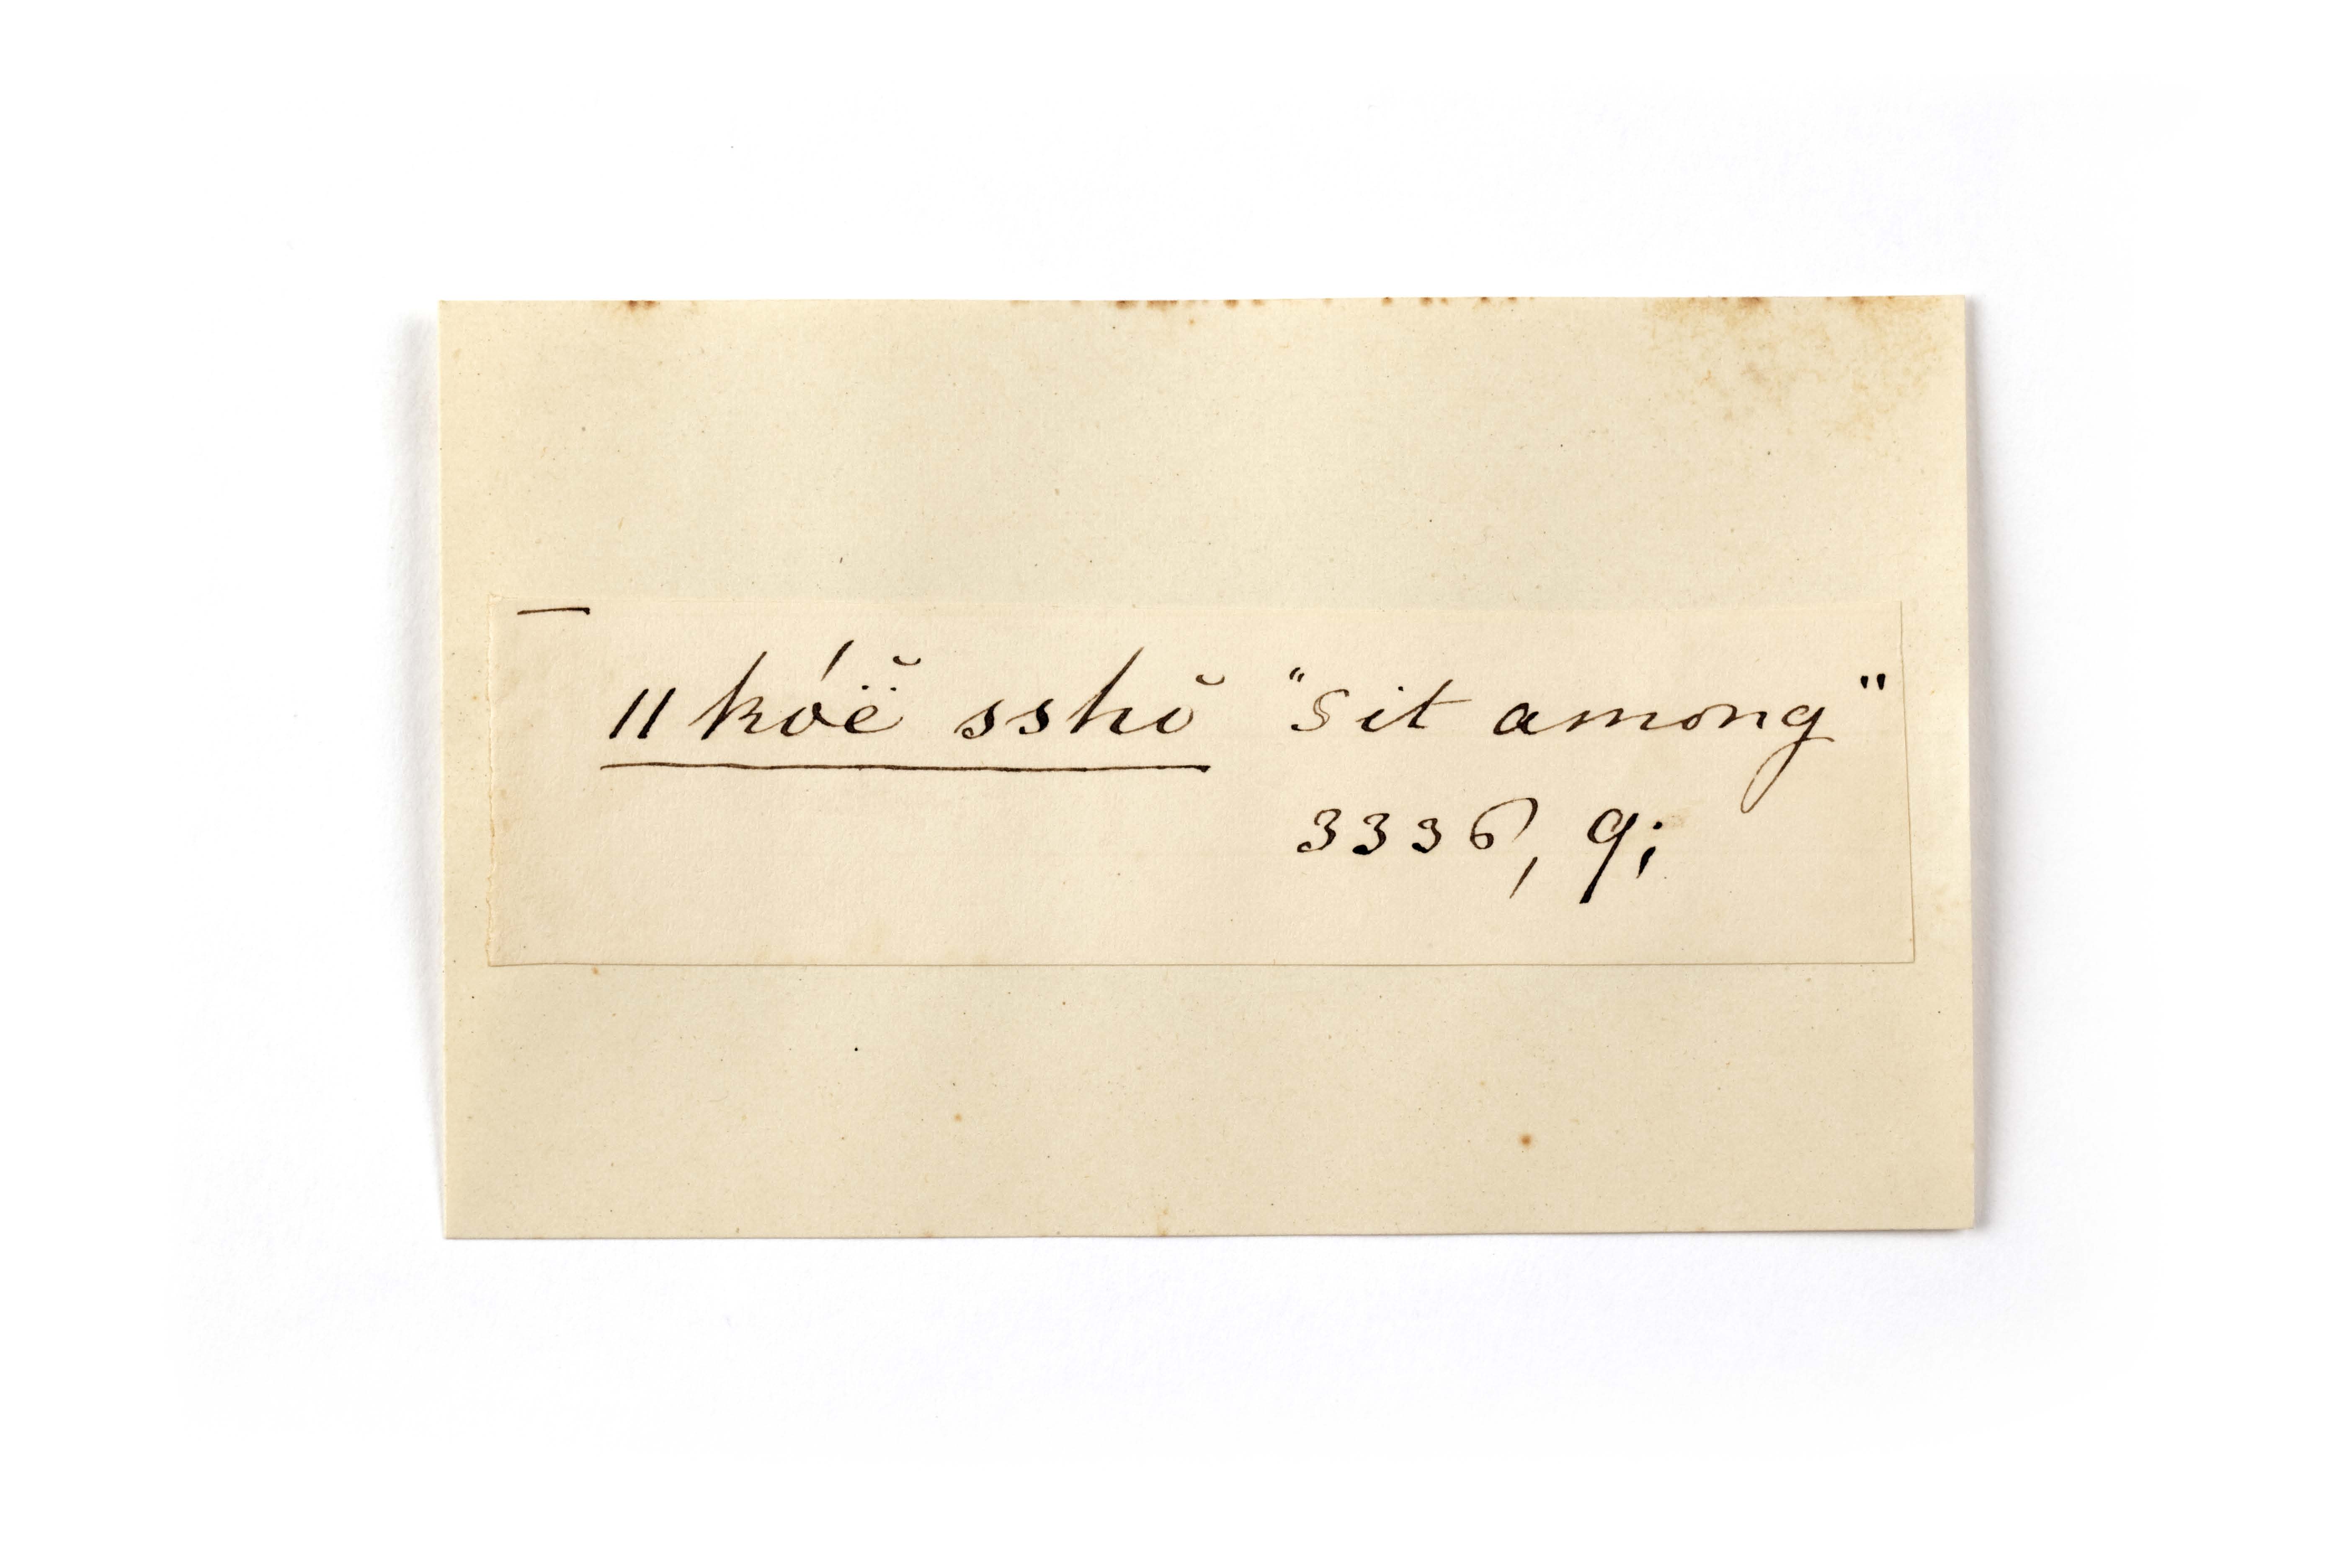 ǁkóë̆ sshŏ "sit among"
3336, 9;